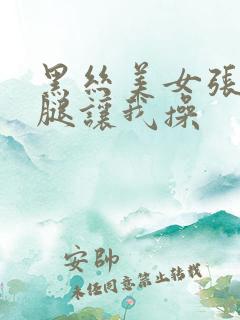 黑丝美女張
腿讓我操
安帥
未经同意禁止转载